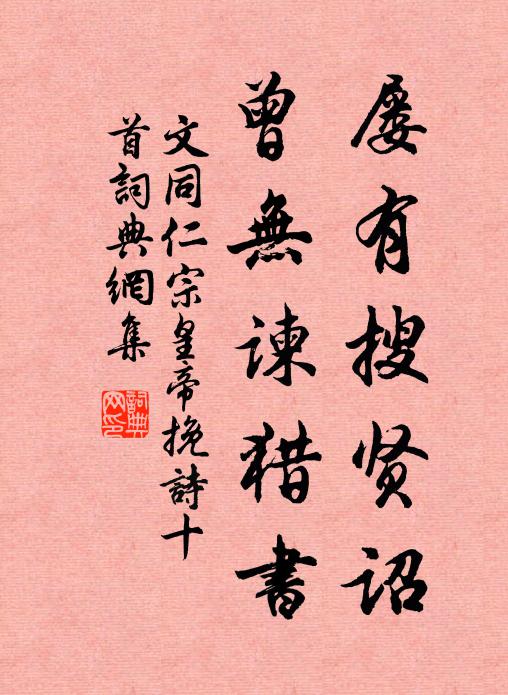 屡有搜贤诏
曾無諫猎書
文同仁宗皇帝挽詩十
首詞典網集
詞典网印